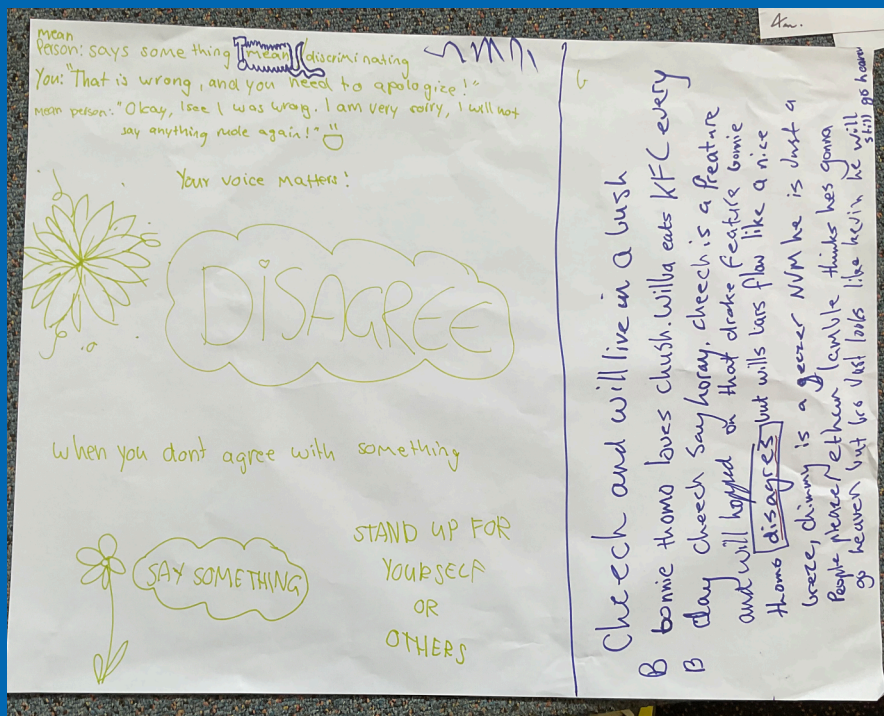 mean
Person: says something mean/discriminating
You: "That is wrong, and you need to apologize!"
mean person: "Okay, I see I was wrong. I am very sorry, I will not
say anything rude again!"
Your voice Matters!
DiSAGREE
when you dont agree with something
SAY SOMETHING
STAND UP FOR
YOURSELF
OR
OTHERS
4m.
Cheech and will live in a bush
B bonnie thomo loves chush. Willa eats KFC every
B day cheech say horay. cheech is a Preature
and will hopped on that drake feature bonnie
thomo disagres but wills bars flow like a nice
breeze, chimmy is a geezer NVM he is Just a
People pleaser ethan lamble thinks hes gonna
go heaven but bro Just looks like kevin he will
still go heaven